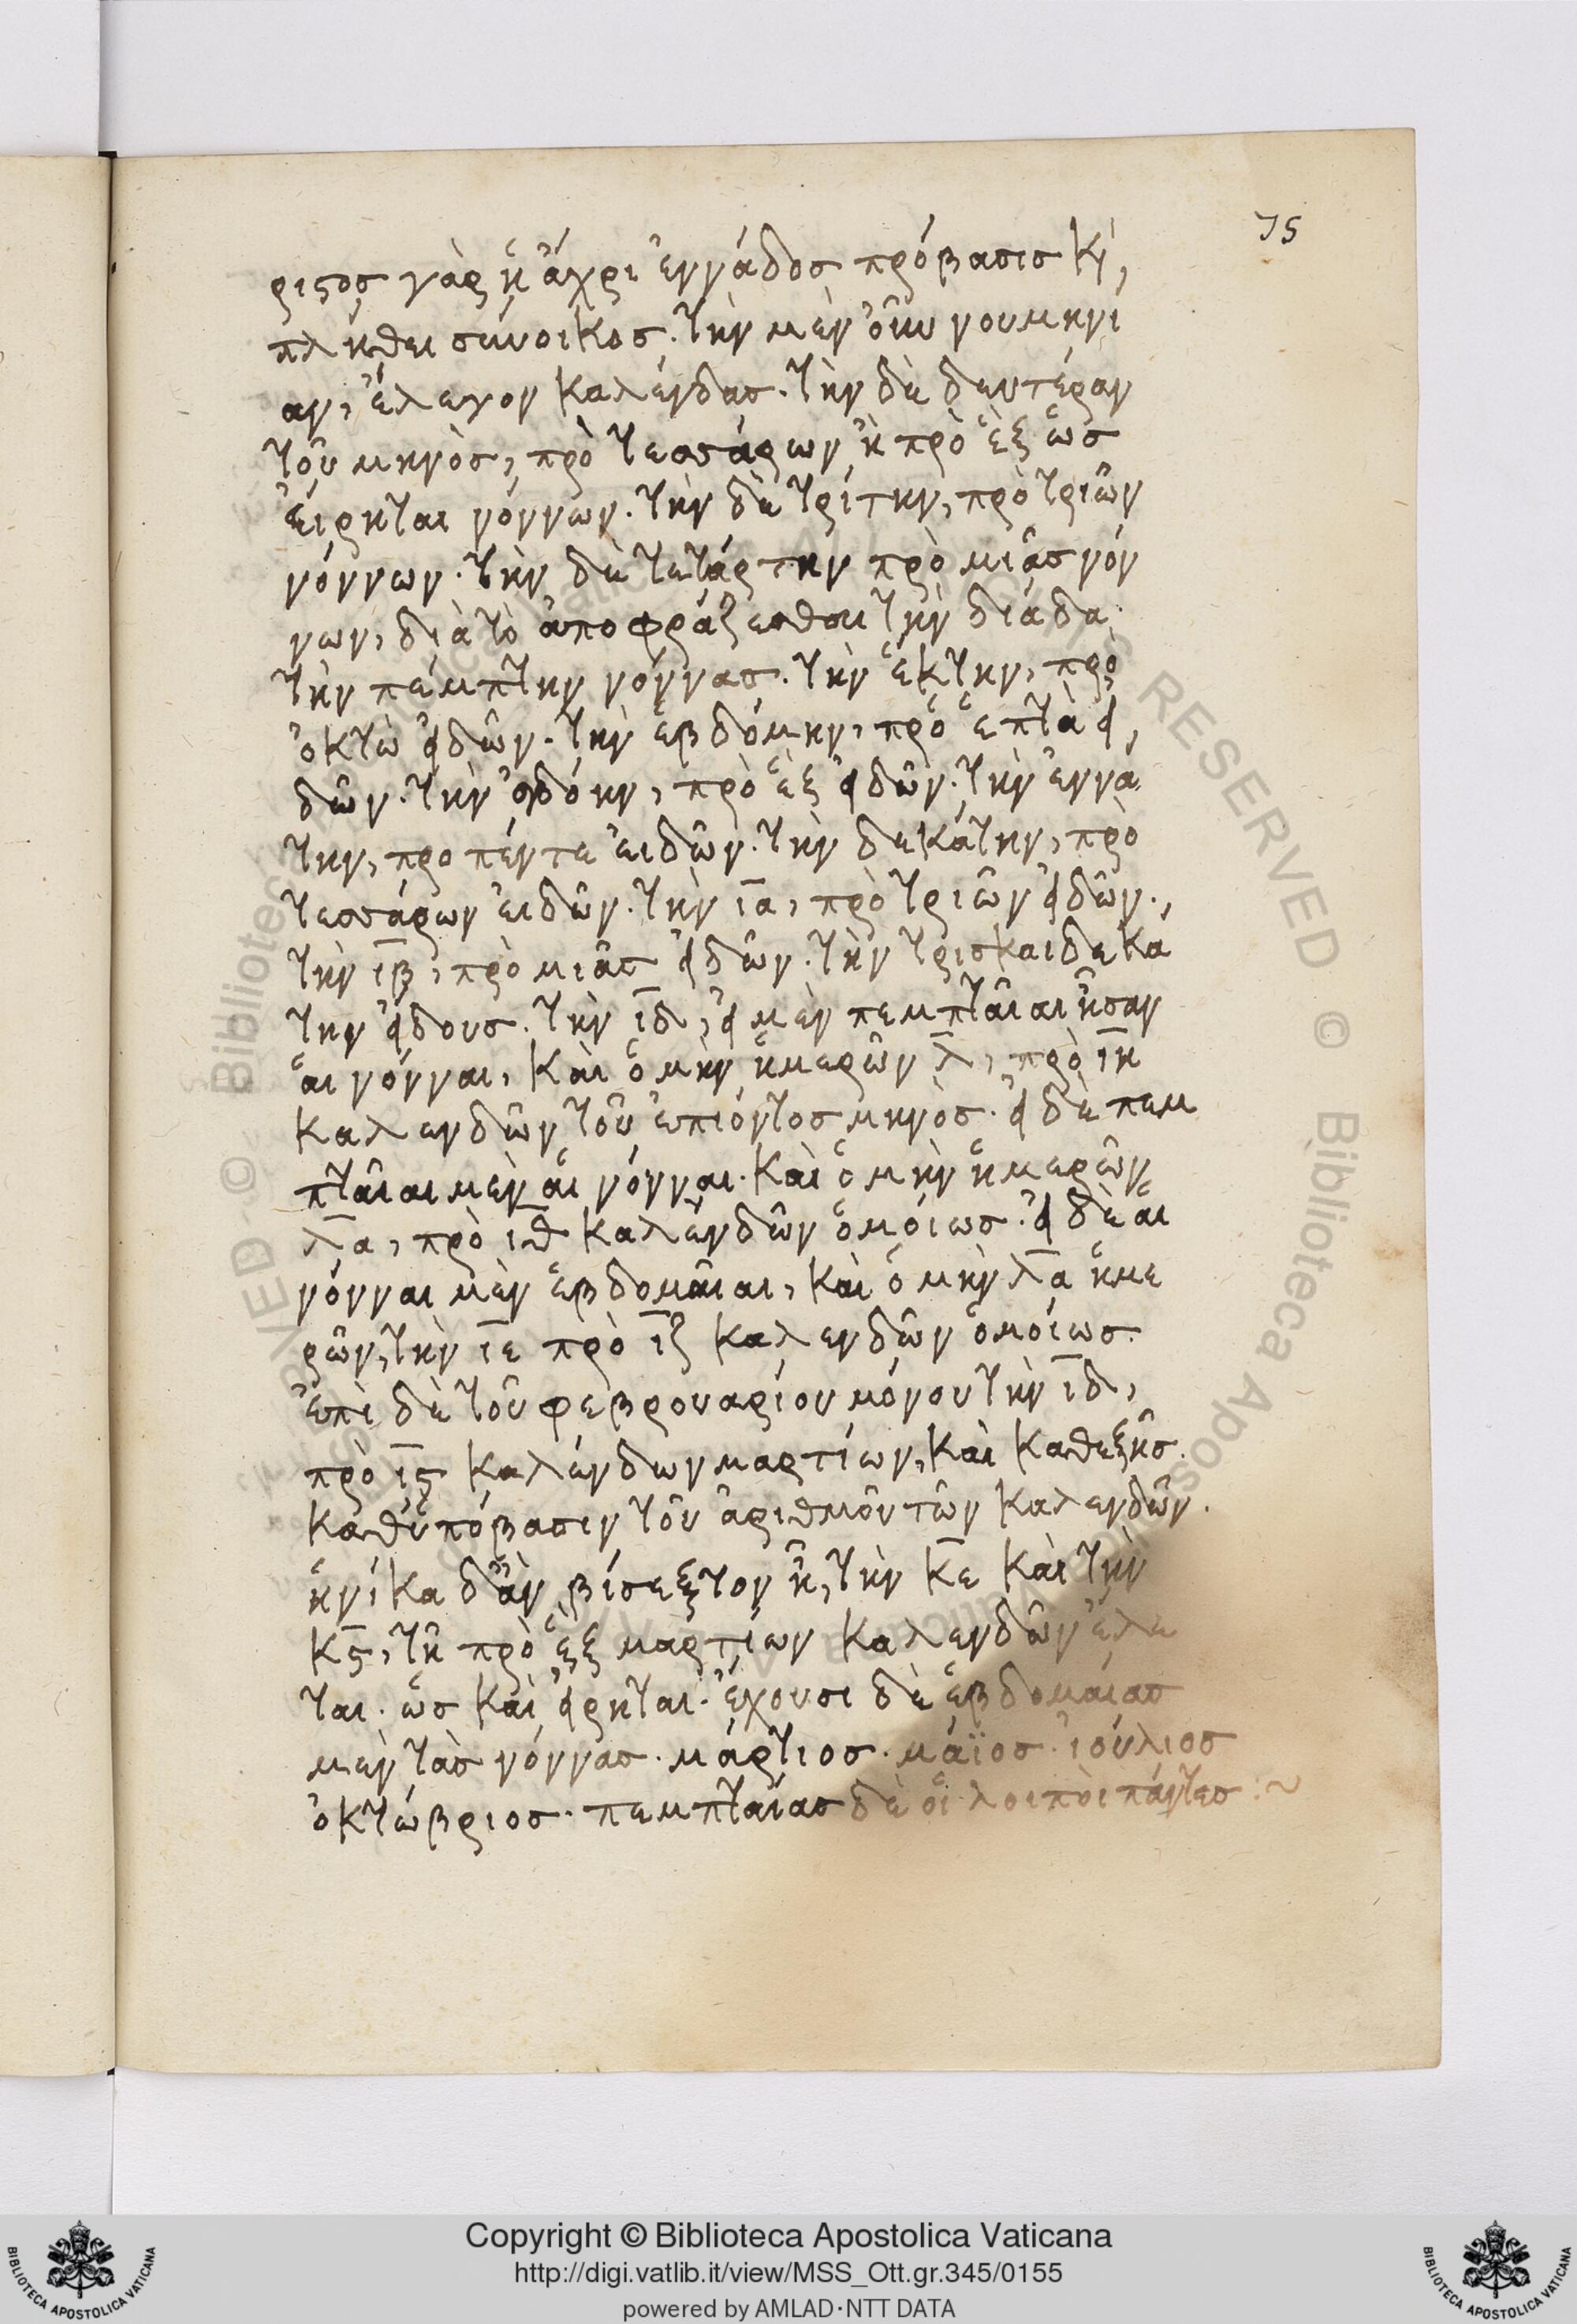 75
ριστος γὰρ ἡ ἄχρι ἐννάδος πρόβασις κỳ,
πλήθει σύνοικος. τὴν μὲν οὖν νουμηνί
αν, ἔλεγον καλένδας. τὴν δὲ δευτέραν
τοῦ μηνὸς, πρὸ τεσσάρων ἢ πρὸ ἓξ ὡς
εἴρηται νόννων. τὴν δὲ τρίτην, πρὸ τριῶν
νόννων. τὴν δὲ τετάρτην πρὸ μιᾶς νόν
νων, διὰ τὸ ἀποφράζεσθαι τὴν διάδα.
τὴν πέμπτην νόννας. τὴν ἕκτην, πρὸ
ὀκτὼ εἰδῶν. τὴν ἑβδόμην, πρὸ ἑπτὰ εἰ,
δῶν. τὴν ὀγδόην, πρὸ ἓξ εἰδῶν. τὴν ἐννά
την, προ πέντε εἰδῶν. τὴν δεκάτην, πρὸ
τεσσάρων εἰδῶν. τὴν ι̅α̅, πρὸ τριῶν εἰδῶν.,
τὴν ι̅β̅, πρὸ μιᾶς εἰδῶν. τὴν τρισκαιδεκά
την εἰδους. τὴν ι̅δ̅, εἰ μὲν πεμπταῖαι ἦσαν
αἱ νόνναι, καὶ ὁ μὴν ἡμερῶν λ̅, πρὸ ι̅η̅
καλενδῶν τοῦ ἐπιόντος μηνὸς. εἰ δὲ πεμ
πταῖαι μὲν αἱ νόνναι. καὶ ὁ μὴν ἡμερῶν
λ̅α̅, πρὸ ι̅θ̅ καλενδῶν ὁμοίως. εἰ δὲ αἱ
νόνναι μὲν ἑβδομαῖαι, καὶ ὁ μὴν λ̅α̅ ἡμε
ρῶν, τὴν ι̅ε̅ πρὸ ι̅ζ̅ καλενδῶν ὁμοίως.
ἐπὶ δὲ τοῦ φεβρουαρίου μόνου τὴν ι̅δ̅,
πρὸ ι̅ς̅ καλένδων μαρτίων, καὶ καθεξῆς.
καθ' ὑπόβασιν τοῦ ἀριθμοῦ τῶν καλενδῶν.
ἡνίκα δ' ἂν βίσεξτον ἦ, τὴν κ̅ε̅ καὶ τὴν
κ̅ς̅, τῆ πρὸ ἓξ μαρτίων καλενδῶν ἐλε
ται. ὡς καὶ εἰρηται. ἔχουσι δὲ ἑβδομαίας
μὲν τὰς νόννας. μάρτιος. μάϊος. ἰούλιος
ὀκτώβριος. πεμπταίας δὲ οἱ λοιποὶ πάντες :~
Copyright © Biblioteca Apostolica Vaticana
http://digi.vatlib.it/view/MSS_Ott.gr.345/0155
powered by AMLAD·NTT DATA
BIBLIOTECA APOSTOLICA VATICANA
BIBLIOTECA APOSTOLICA VATICANA